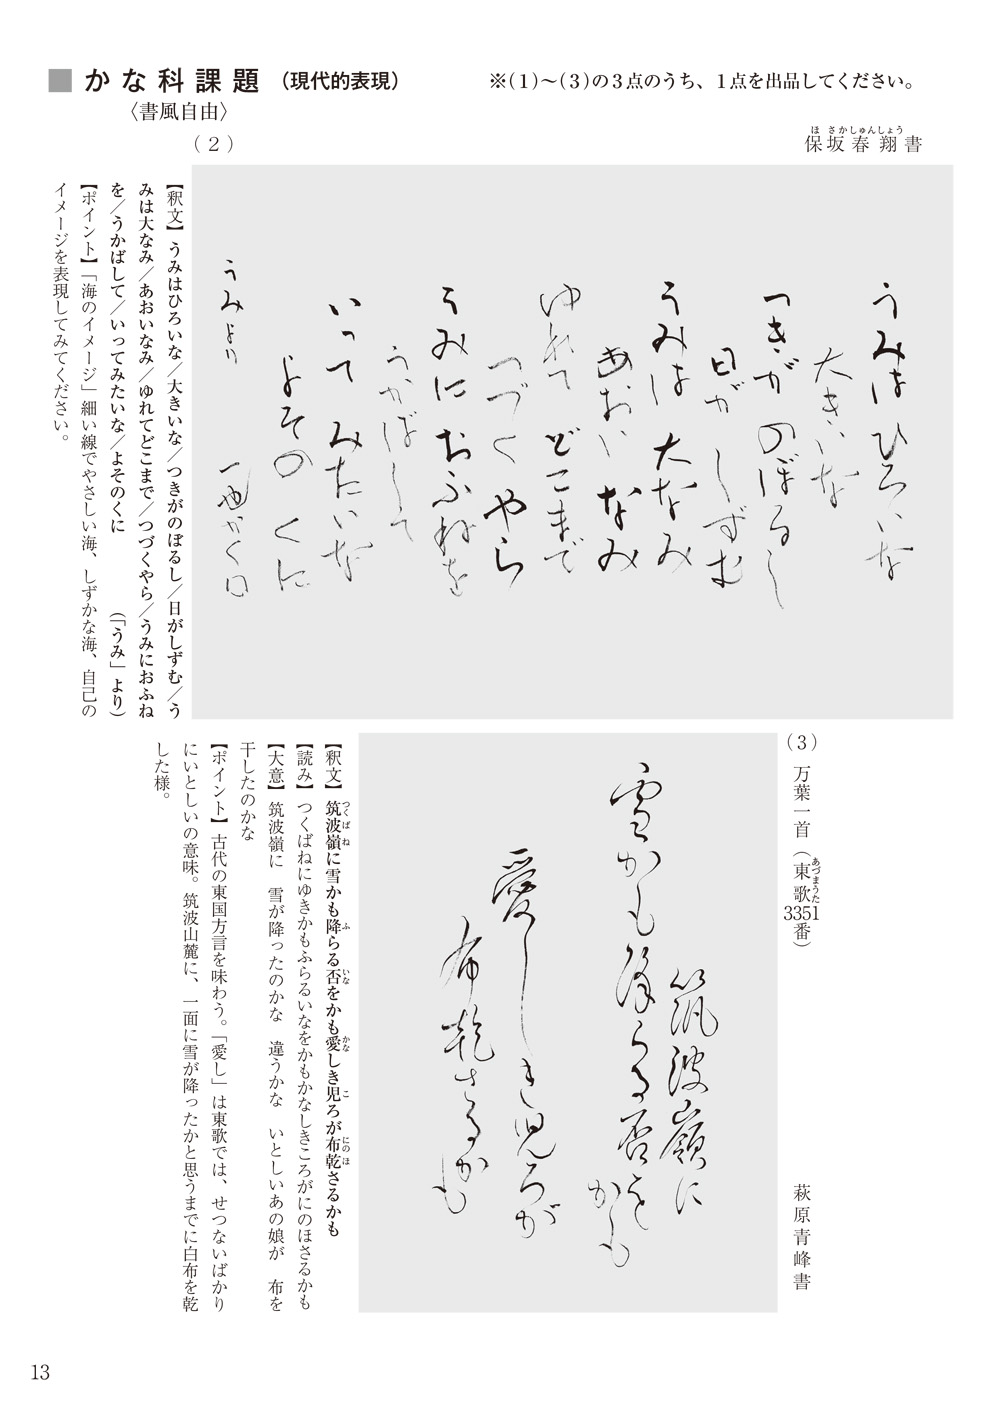 ■ かな科課題（現代的表現）
※（1）～（3）の3点のうち、1点を出品してください。
〈書風自由〉
（2）
保坂春翔書
ほさかしゅんしょう
うみはひろいな
大きいな
つきがのぼるし
日がしずむ
うみは大なみ
あおいなみ
ゆれてどこまで
つづくやら
うみにおふねを
うかばして
いってみたいな
よそのくに
うみより
【釈文】うみはひろいな／大きいな／つきがのぼるし／日がしずむ／う
みは大なみ／あおいなみ／ゆれてどこまで／つづくやら／うみにおふね
を／うかばして／いってみたいな／よそのくに　　　（「うみ」より）
【ポイント】「海のイメージ」細い線でやさしい海、しずかな海、自己の
イメージを表現してみてください。
（3）
万葉一首（東歌3351番）
あづまうた
萩原青峰書
筑波嶺に
雪かも降らる否を
かも
愛しき児ろが
布乾さるかも
【釈文】筑波嶺に雪かも降らる否をかも愛しき児ろが布乾さるかも
つくばね　ふ　いな　かな　こ　にのほ
【読み】つくばねにゆきかもふらるいなをかもかなしきころがにのほさるかも
【大意】筑波嶺に　雪が降ったのかな　違うかな　いとしいあの娘が　布を
干したのかな
【ポイント】古代の東国方言を味わう。「愛し」は東歌では、せつないばかり
にいとしいの意味。筑波山麓に、一面に雪が降ったかと思うまでに白布を乾
した様。
13